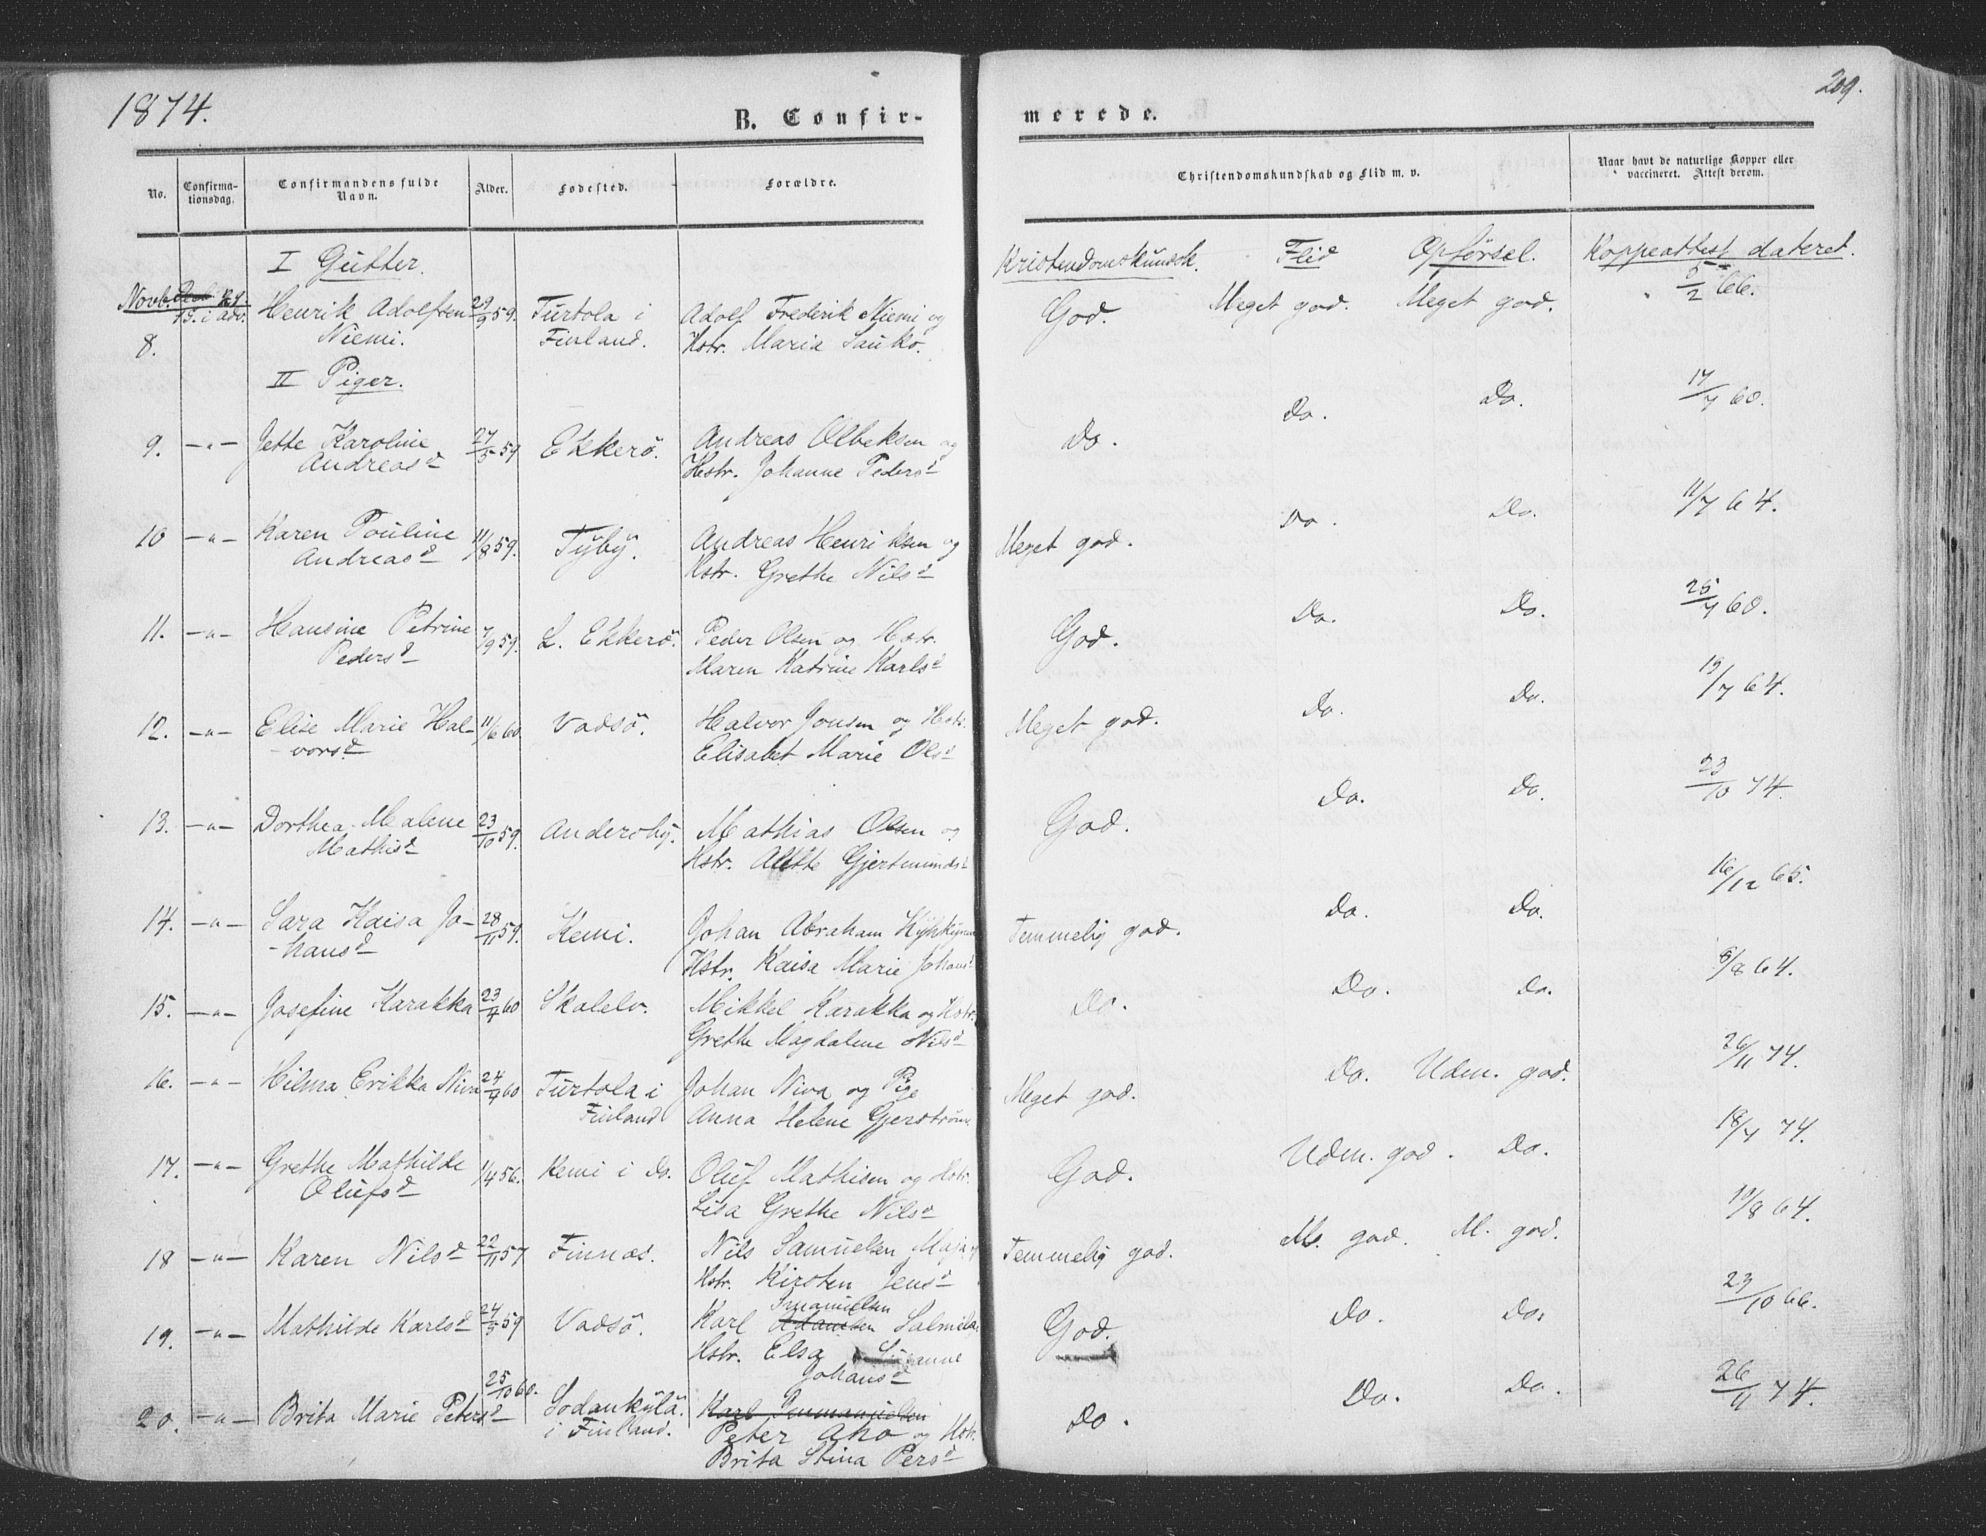 1874.
209.
B. Confir-
merede.
No.
Confirma-
tionsdag.
Confirmandens fulde
Navn.
Alder.
Fødested.
Forældre.
Christendomskundskab og Flid m. v.
Naar havt de naturlige Kopper eller
vaccineret. Attest derom.
I Gutter.
Kristendomskundsk. Flid Opførsel. Koppeattest dateret.
Novb.
15. i adv.
8.
Henrik Adolfsen 29/9 59. Turtola i Adolf Frederik Niemi og God. Meget god. Meget god. 5/2 66.
Niemi. Finland. Hstr. Maria Sauko.
II Piger.
9. -"- Jette Karoline 27/5 59 Ekkerö. Andreas Olbeksen og Do. Do. Do. 17/7 60.
Andreasd Hstr. Johanne Pedersd
10 -"- Karen Pouline 11/8 59. Tyby. Andreas Henriksen og Meget god. Do. Do. 11/7 64.
Andreasd Hstr. Grethe Nilsd
11. -"- Hansine Petrine 7/9 59. L. Ekkerö. Peder Olsen og Hstr. God. Do. Do. 25/7 60.
Pedersd Maren Katrine Karlsd
12. -"- Elise Marie Hal- 11/6 60 Vadsö. Halvor Jonsen og Hstr. Meget god. Do. Do. 19/7 64.
vorsd Elisabet Marie Olsd
13. -"- Dorthea Malene 23/10 59. Andersby. Mathias Olsen og God. Do. Do. 23/10 74.
Mathisd Hstr. Alette Gjertmundsd
14. -"- Sara Kaisa Jo- 28/11 59. Kemi. Johan Abraham Temmelig god. Do. Do. 16/12 65.
hansd Hstr. Kaisa Marie Johansd
15. -"- Josefine Karakka 23/4 60 Skalelv. Mikkel Karakka og Hstr. Do. Do. Do. 6/8 64.
Grethe Magdalene Nilsd
16. -"- Hilma Erikka Niva 24/9 60 Turtola i Johan Niva og Pige Meget god. Do. Udm. god. 26/11 74.
Finland Anna Helene Gjerström
17. -"- Grethe Mathilde 1/4 56. Kemi i do. Oluf Mathisen og Hstr. God. Udm. god. Do. 18/7 74.
Olufsd Lisa Grethe Nilsd
18 -"- Karen Nilsd 22/11 57 Finnæs. Nils Samuelsen Maja og Temmelig god. M. god. M. god. 19/8 64.
Hstr. Kirsten Jensd
Imanuelsen
19. -"- Mathilde Karlsd 24/3 59 Vadsö. Karl Adamsen Salmela God. Do. Do. 23/10 66.
Hstr. Elsa Susanne
Johansd
20. -"- Brita Marie Petersd 25/10 60. Sodankylä Karl Immanuelsen Do. Do. Do. 26/11 74.
i Finland. Peter Aho og Hstr.
Brita Stina Persd